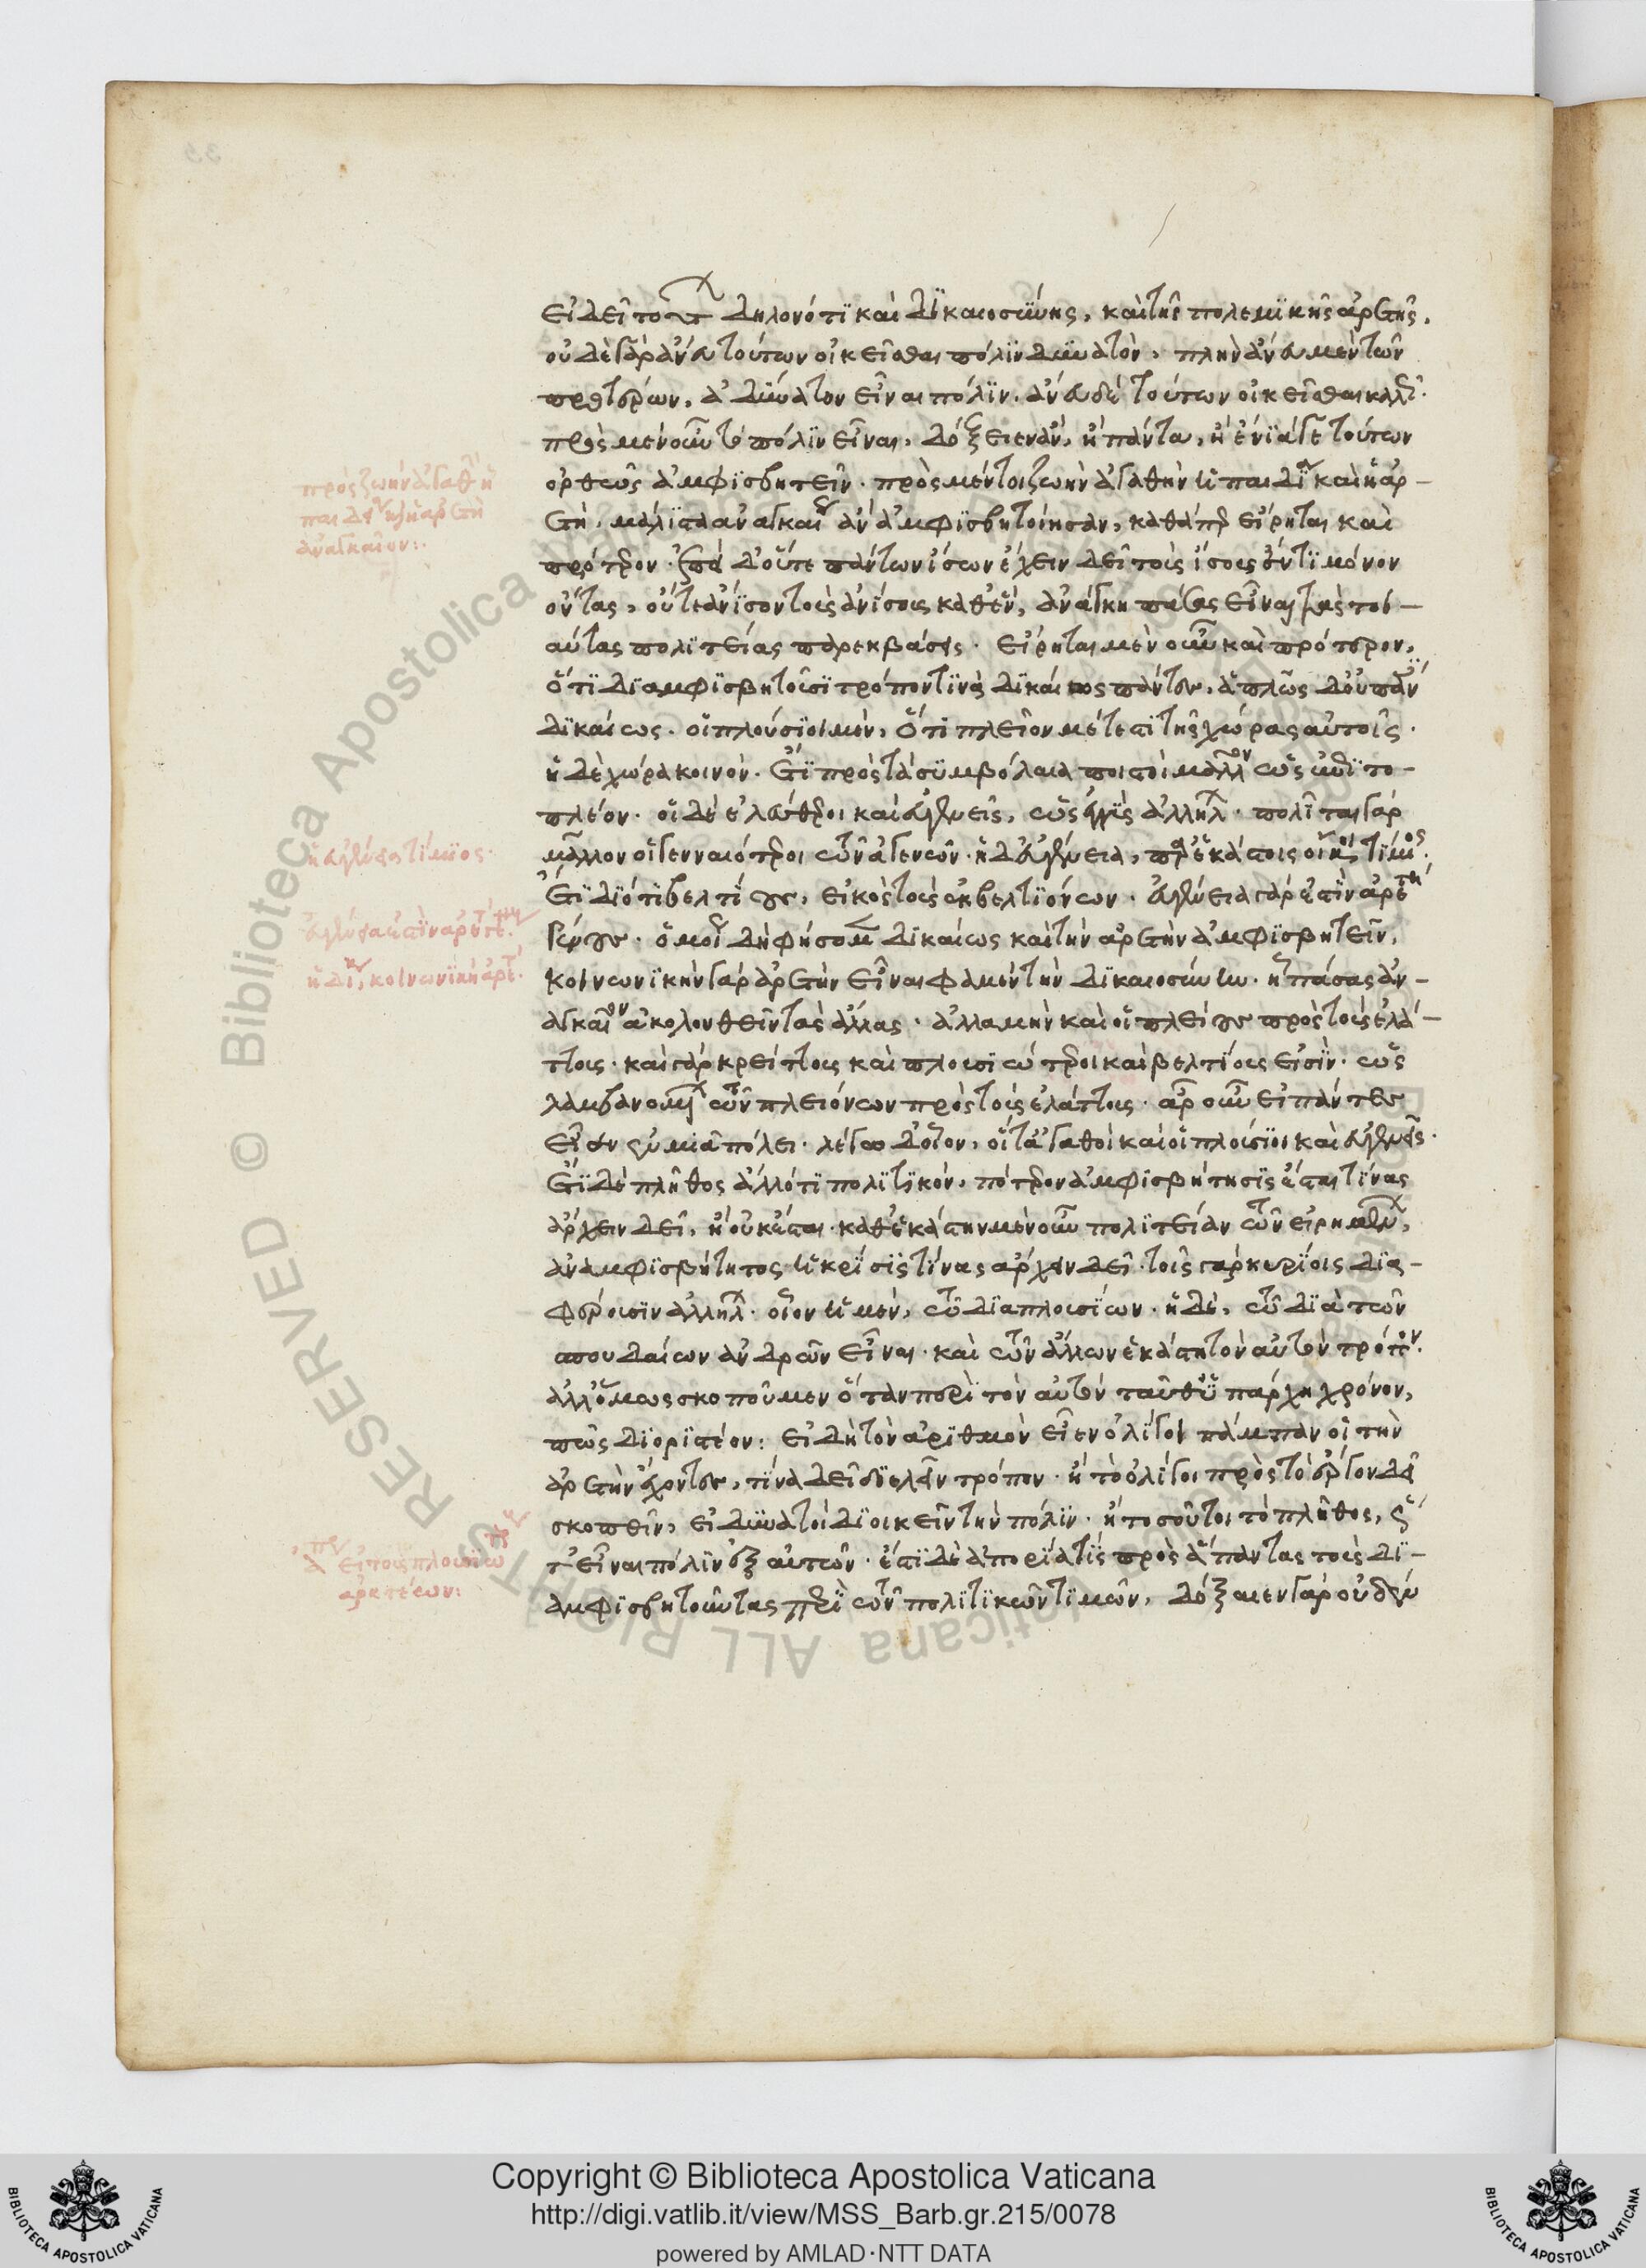 εἰ δεῖ τούτων δηλονότι καὶ δικαιοσύνης, καὶ τῆς πολεμικῆς ἀρετῆς.
οὐδὲ γὰρ ἄνευ τούτων οἰκεῖσθαι πόλιν δυνατόν, πλὴν ἄνευ μὲν τῶν
προτέρων, ἀδύνατον εἶναι πόλιν. ἄνευ δὲ τούτων οἰκεῖσθαι καλῶς.
πρὸς μὲν οὖν τὸ πόλιν εἶναι, δόξειεν ἂν, ἢ πάντα, ἢ ἔνιά γε τούτων
ὀρθῶς ἀμφισβητεῖν. πρὸς μέντοι ζωὴν ἀγαθὴν ἡ παιδεία καὶ ἡ ἀρ-
ετὴ, μάλιστα ἀναγκαίως ἂν ἀμφισβητοίησαν, καθάπερ εἴρηται καὶ
πρότερον. ἐπεὶ δ' οὔτε πάντων ἴσων ἔχειν δεῖ τοὺς ἴσους ἕν τι μόνον
ὄντας, οὔτε ἄνισον τοὺς ἀνίσους καθ' ἓν, ἀνάγκη πάσας εἶναι τὰς τοι-
αύτας πολιτείας παρεκβάσεις. εἴρηται μὲν οὖν καὶ πρότερον,
ὅτι διαμφισβητοῦσι τρόπον τινὰ δικαίως πάντες, ἁπλῶς δ' οὐ πάντες
δικαίως. οἱ πλούσιοι μὲν, ὅτι πλεῖον μέτεστι τῆς χώρας αὐτοῖς.
ἡ δὲ χώρα κοινόν. ἔτι πρὸς τὰ συμβόλαια πιστοὶ μᾶλλον ὡς ἐπὶ το-
πλέον. οἱ δὲ ἐλεύθεροι καὶ εὐγενεῖς, ὡς ἐγγὺς ἀλλήλων. πολῖται γὰρ
μᾶλλον οἱ γενναιότεροι τῶν ἀγενῶν. ἡ δ' εὐγένεια, παρ' ἑκάστοις οἴκοι τίμιος.
ἔτι διότι βελτίους, εἰκὸς τοὺς ἐκ βελτιόνων. εὐγένεια γάρ ἐστιν ἀρετὴ
γένους. ὁμοίως δὴ φήσομεν δικαίως καὶ τὴν ἀρετὴν ἀμφισβητεῖν,
κοινωνικὴν γὰρ ἀρετὴν εἶναι φαμὲν τὴν δικαιοσύνην. ᾗ πάσας ἀν-
αγκαῖον ἀκολουθεῖν τὰς ἄλλας. ἀλλὰ μὴν καὶ οἱ πλείους πρὸς τοὺς ἐλά-
ττους. καὶ γὰρ κρείττους καὶ πλουσιώτεροι καὶ βελτίους εἰσὶν. ὡς
λαμβανομένων τῶν πλειόνων πρὸς τοὺς ἐλάττους. ἆρ' οὖν εἰ πάντες
εἶεν ἐν μιᾷ πόλει. λέγω δ' οἷον, οἵ τ' ἀγαθοὶ καὶ οἱ πλούσιοι καὶ εὐγενεῖς.
ἔτι δὲ πλῆθος ἄλλό τι πολιτικόν, πότερον ἀμφισβήτησις ἔσται τίνας
ἄρχειν δεῖ, ἢ οὐκ ἔσται. καθ' ἑκάστην μὲν οὖν πολιτείαν τῶν εἰρημένων,
ἀναμφισβήτητος ἡ κρίσις τίνας ἄρχειν δεῖ. τοῖς γὰρ κυρίοις δια-
φέρουσιν ἀλλήλων. οἷον ἡ μὲν, τῷ διὰ πλουσίων. ἡ δὲ, τῷ διὰ τῶν
σπουδαίων ἀνδρῶν εἶναι. καὶ τῶν ἄλλων ἑκάστη τὸν αὐτὸν τρόπον.
ἀλλ' ὅμως σκοποῦμεν ὅταν περὶ τὸν αὐτὸν ταῦθ' ὑπάρχῃ χρόνον,
πῶς διοριστέον: εἰ δὴ τὸν ἀριθμὸν εἶεν ὀλίγοι πάμπαν οἱ τὴν
ἀρετὴν ἔχοντες, τίνα δεῖ διελεῖν τρόπον. ἢ τὸ ὀλίγοι πρὸς τὸ ἔργον δεῖ
σκοπεῖν, εἰ δυνατοὶ διοικεῖν τὴν πόλιν. ἢ τοσοῦτοι τὸ πλῆθος, ὥς
τ' εἶναι πόλιν ἐξ αὐτῶν. ἔστι δὲ ἀπορία τις πρὸς ἅπαντας τοὺς δι-
αμφισβητοῦντας περὶ τῶν πολιτικῶν τιμῶν, δόξαιεν γὰρ οὐδὲν
πρὸς ζωὴν ἀγαθὴν ἡ
παιδεία καὶ ἡ ἀρετὴ
ἀναγκαῖον:
ἡ εὐγένεια τίμιος.
εὐγένεια ἐστὶν ἀρετὴ γένους.
ἡ δικαιοσύνη, κοινωνικὴ ἀρετή.
εἰ τοῖς πλουσίοις
ἀρκτέον:
Copyright © Biblioteca Apostolica Vaticana
http://digi.vatlib.it/view/MSS_Barb.gr.215/0078
powered by AMLAD·NTT DATA
BIBLIOTECA APOSTOLICA VATICANA
BIBLIOTECA APOSTOLICA VATICANA
© Biblioteca Apostolica Vaticana ALL RIGHTS RESERVED